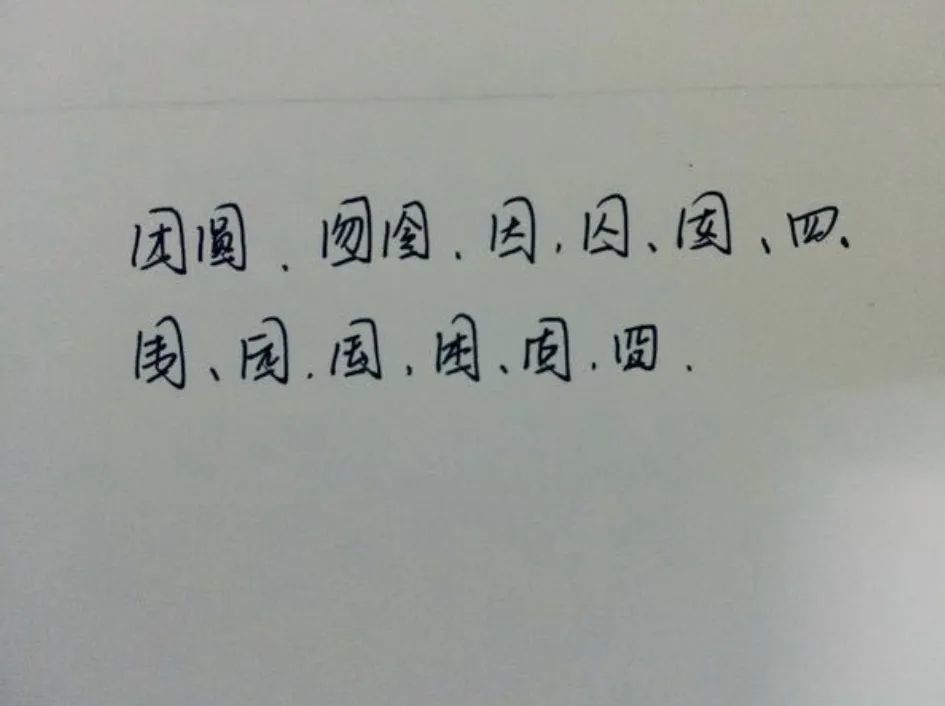 团圆、囫囵、因、囚、囡、四、
围、园、国、困、固、囧.